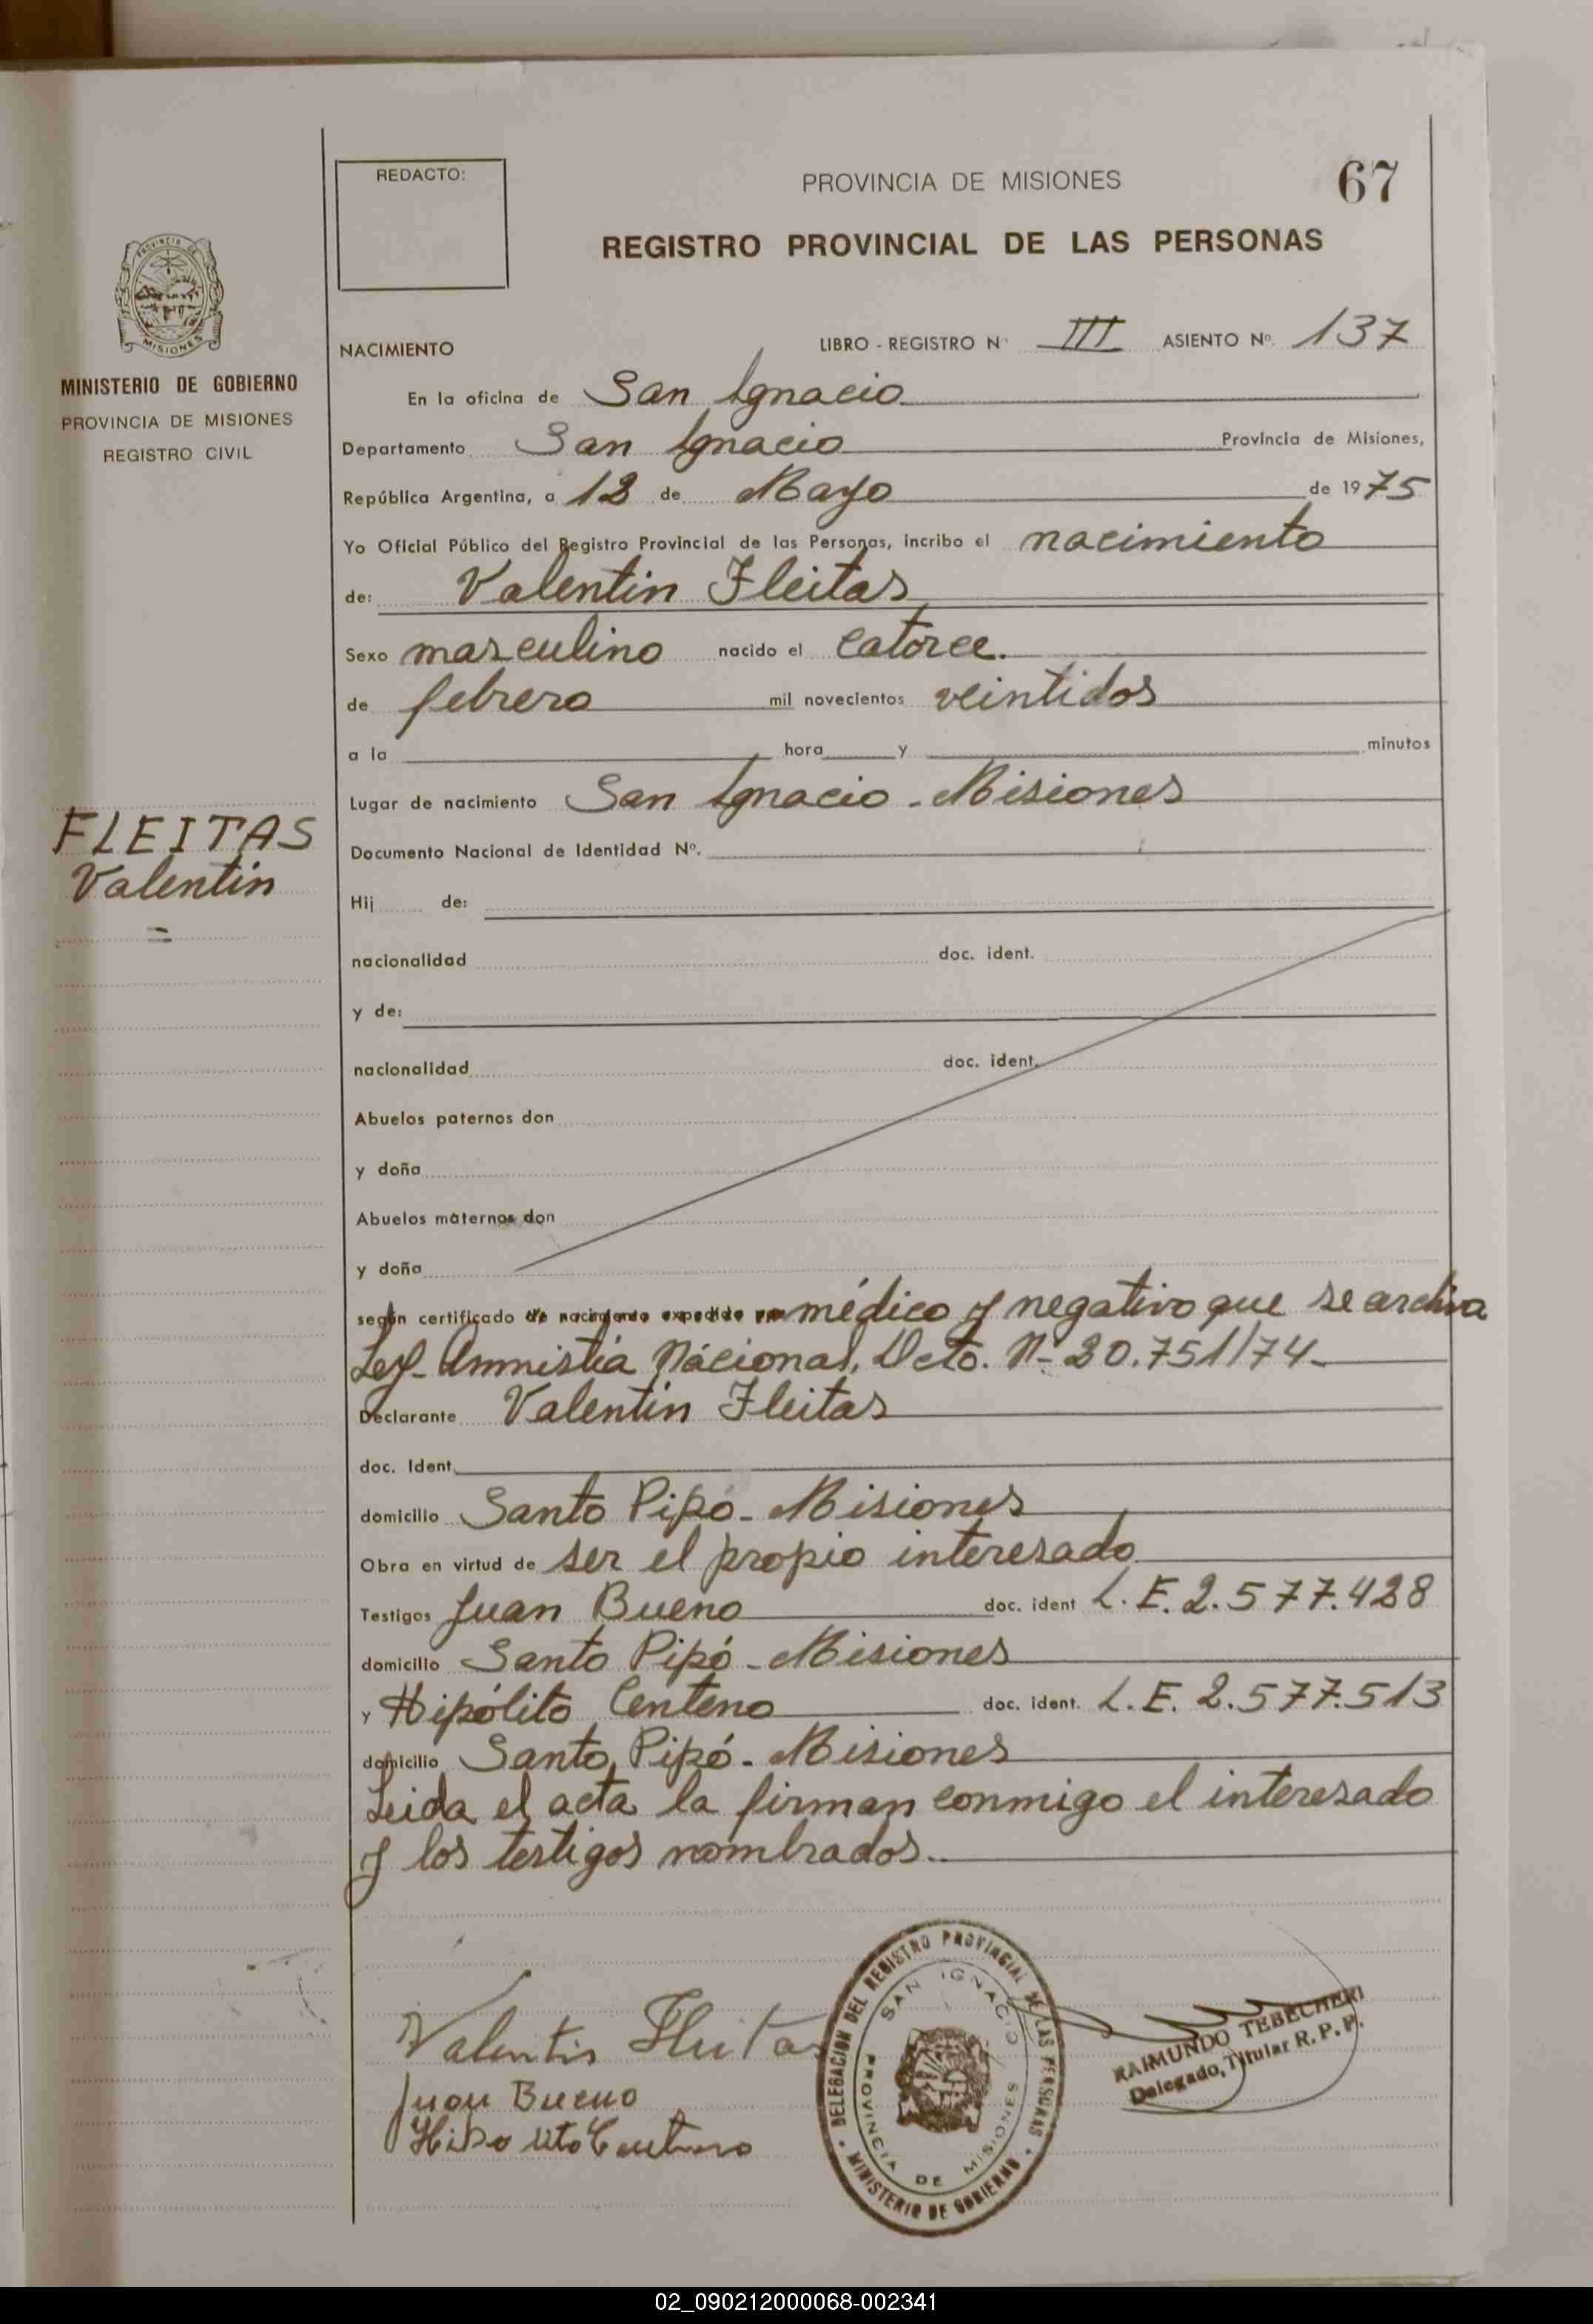 REDACTO:
PROVINCIA DE MISIONES
67
REGISTRO PROVINCIAL DE LAS PERSONAS
MISIONES
MINISTERIO DE GOBIERNO
PROVINCIA DE MISIONES
REGISTRO CIVIL
NACIMIENTO LIBRO - REGISTRO Nº III ASIENTO Nº. 137
En la oficina de San Ignacio
Departamento San Ignacio Provincia de Misiones,
República Argentina, a 12 de Mayo de 1975
Yo Oficial Público del Registro Provincial de las Personas, incribo el nacimiento
de: Valentin Fleitas
Sexo masculino nacido el catorce.
de febrero mil novecientos veintidos
a la hora y minutos
Lugar de nacimiento San Ignacio - Misiones
FLEITAS
Valentin
=
Documento Nacional de Identidad Nº.
Hij de:
nacionalidad doc. ident.
y de:
nacionalidad doc. ident.
Abuelos paternos don
y doña
Abuelos maternos don
y doña
según certificado de nacimiento expedido por médico y negativo que se archiva
Ley - Amnistia Nácional, Dcto. Nº 20.751/74-
Declarante Valentin Fleitas
doc. Ident.
domicilio Santo Pipó - Misiones
Obra en virtud de ser el propio interesado
Testigos Juan Bueno doc. ident L.E. 2.577.428
domicilio Santo Pipó - Misiones
y Hipólito Centeno doc. ident. L.E. 2.577.513
domicilio Santo Pipó - Misiones
Leida el acta la firman conmigo el interesado
y los testigos nombrados.
Valentin Fleitas
Juan Bueno
Hipolito Centeno
DELEGACION DEL REGISTRO PROVINCIAL DE LAS PERSONAS
SAN IGNACIO
PROVINCIA DE MISIONES
MINISTERIO DE GOBIERNO
RAIMUNDO TEBECHERI
Delegado, Titular R. P. P.
02_090212000068-002341